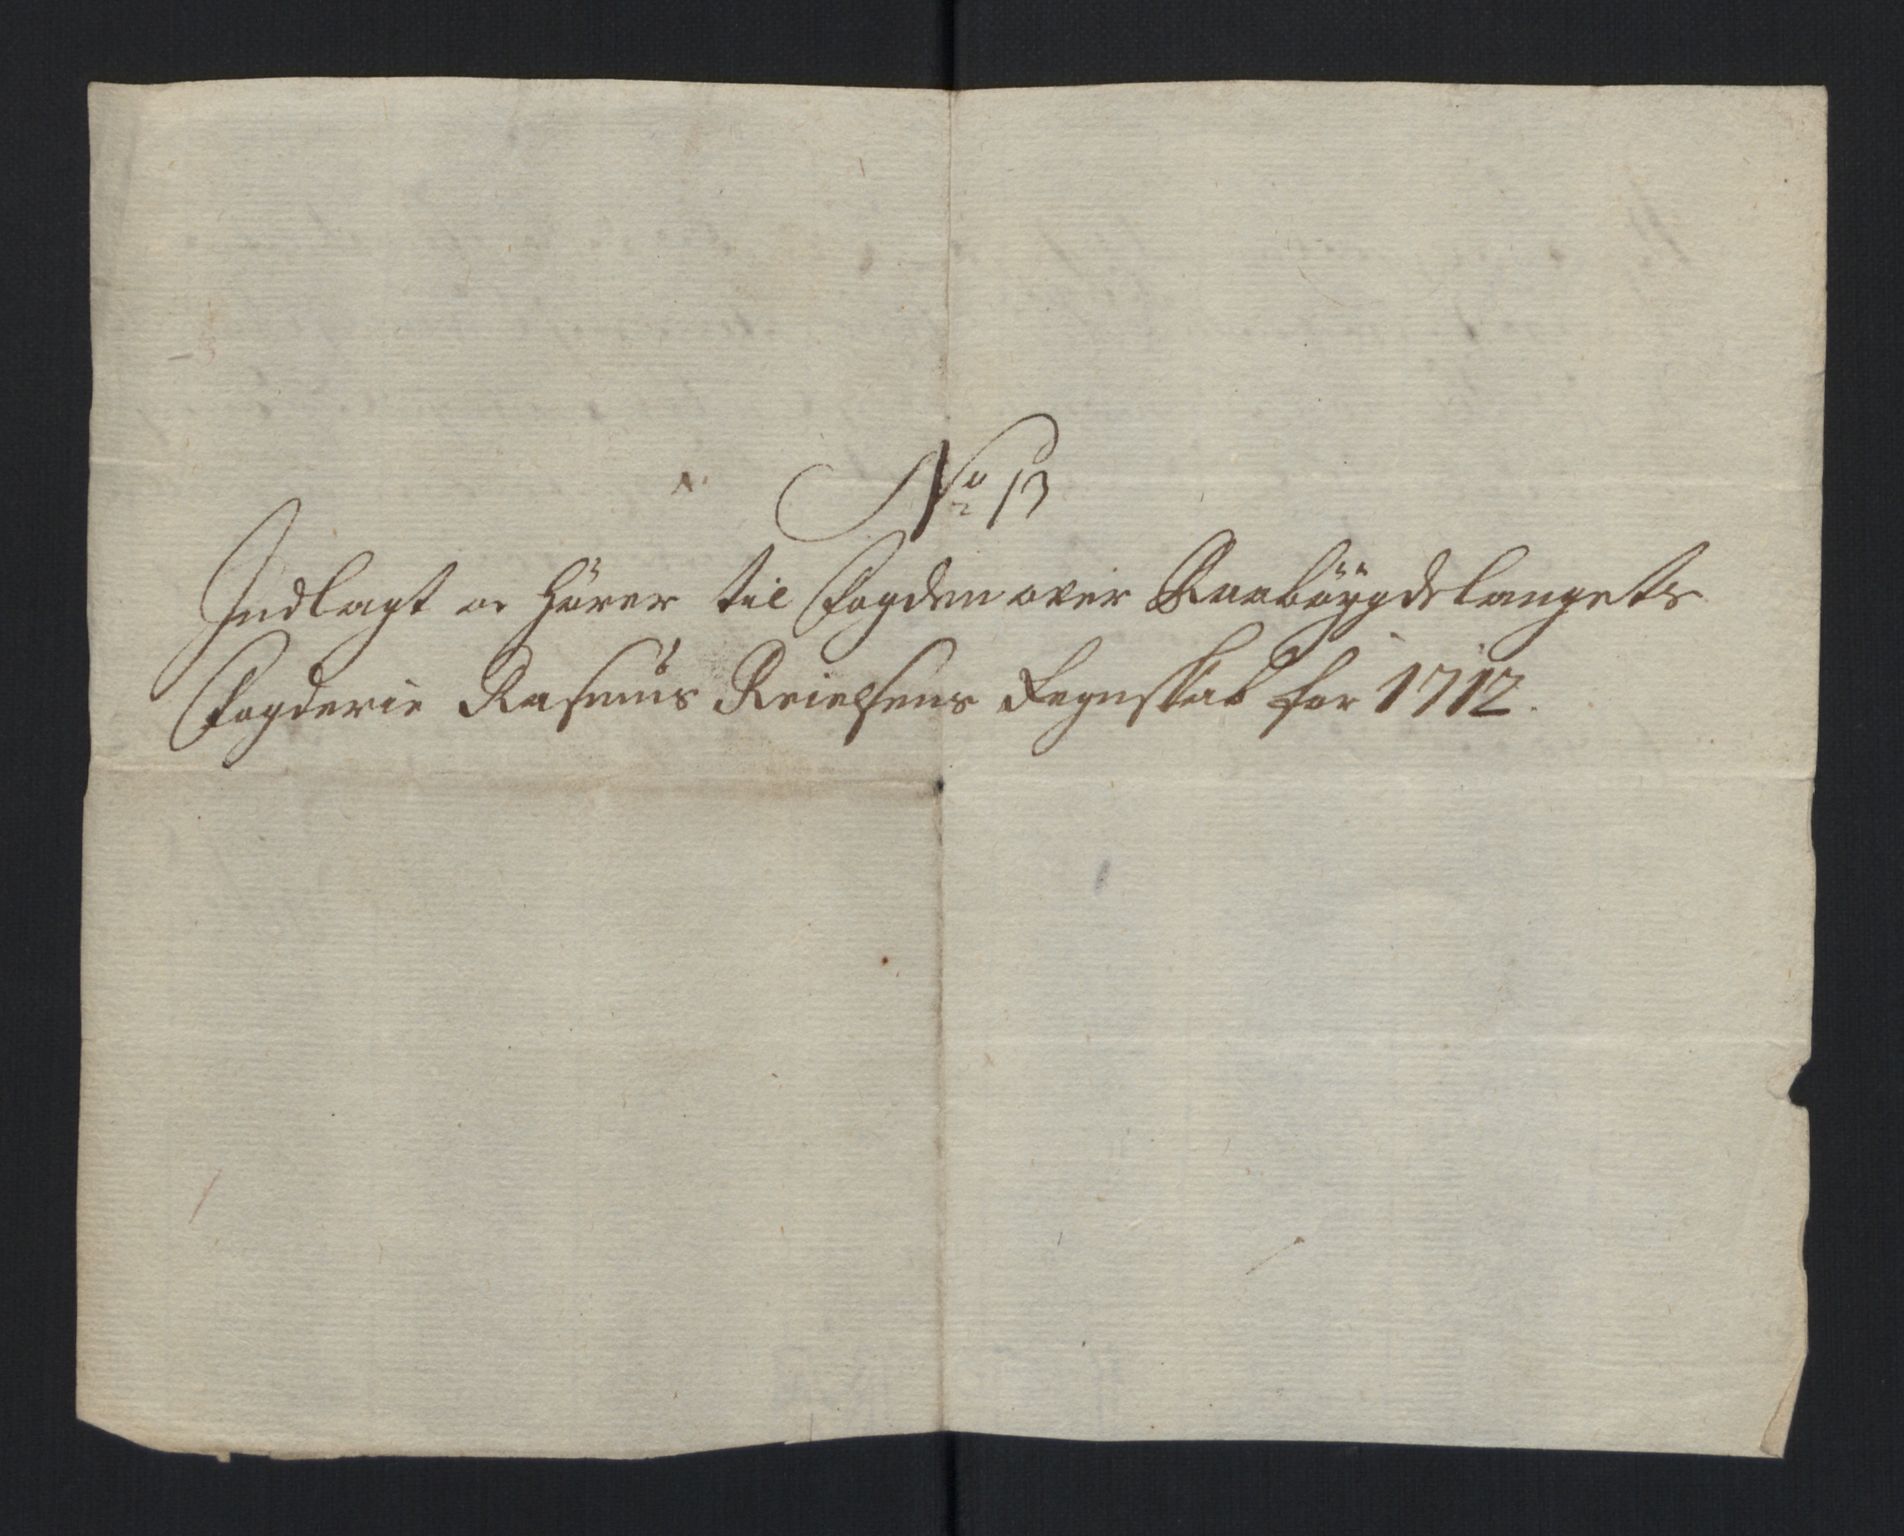 No 13
Indlagt oc hörer til Fogden over Raabÿgdelaugets
Fogderie Rasmus Reielsens Regnskab for 1712.